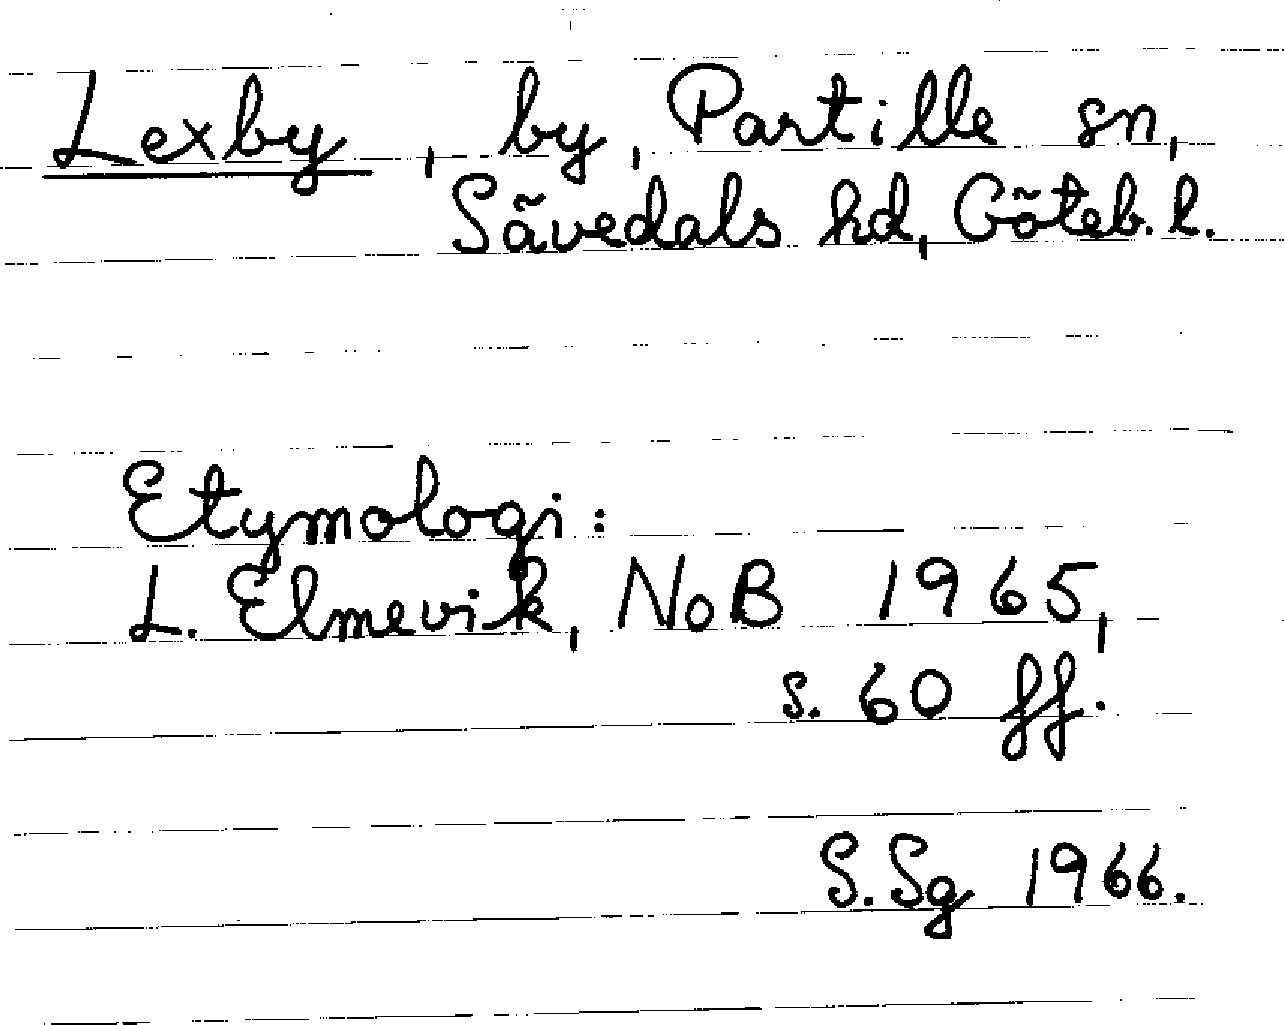 Lexby, by, Partille sn,
Sävedals hd, Göteb. l.
Etymologi:
L. Elmevik, NoB 1965,
s. 60 ff.
S. Sg 1966.